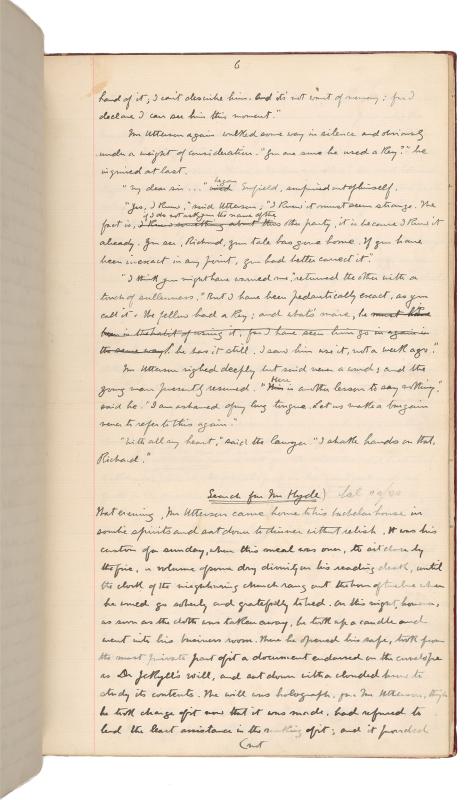 6
hand of it; I can't describe him. And it's not want of memory: for I
declare I can see him this moment."
Mr Utterson again walked some way in silence and obviously
under a weight of consideration. "You are sure he used a key?" he
inquired at last.
"My dear sir ..." began Enfield, surprised out of himself.
"Yes, I know," said Utterson; "I know it must seem strange. The
fact is, if I do not ask you the name of the other party, it is because I know it
already. You see, Richard, your tale has gone home. If you have
been inexact in any point, you had better correct it."
"I think you might have warned me," returned the other with a
touch of sullenness. "But I have been pedantically exact, as you
call it. The fellow had a key; and what's more, he must have
been in the habit of using it, for I have seen him go in again in
the same way. he has it still. I saw him use it, not a week ago."
Mr Utterson sighed deeply but said never a word; and the
young man presently resumed. "Here is another lesson to say nothing,"
said he. "I am ashamed of my long tongue. Let us make a bargain
never to refer to this again."
"With all my heart," said the lawyer. "I shake hands on that,
Richard."
Search for Mr Hyde)
That evening, Mr Utterson came home to his bachelor house in
sombre spirits and sat down to dinner without relish. It was his
custom of a sunday, when this meal was over, to sit close by
the fire, a volume of some dry divinity on his reading desk, until
the clock of the neighbouring church rang out the hour of twelve when
he would go soberly and gratefully to bed. On this night, however,
as soon as the cloth was taken away, he took up a candle and
went into his business room. There he opened his safe, took from
the most private part of it a document endorsed on the envelope
as Dr Jekyll's will, and sat down with a clouded brow to
study its contents. The will was holograph, for Mr Utterson, though
he took charge of it now that it was made, had refused to
lend the least assistance in the making of it; and it provided
(not